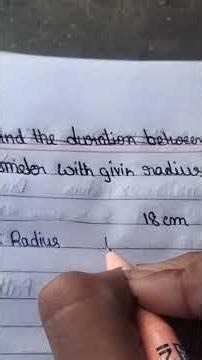 nd the duration between
meter with givin radius
18 cm
: Radius